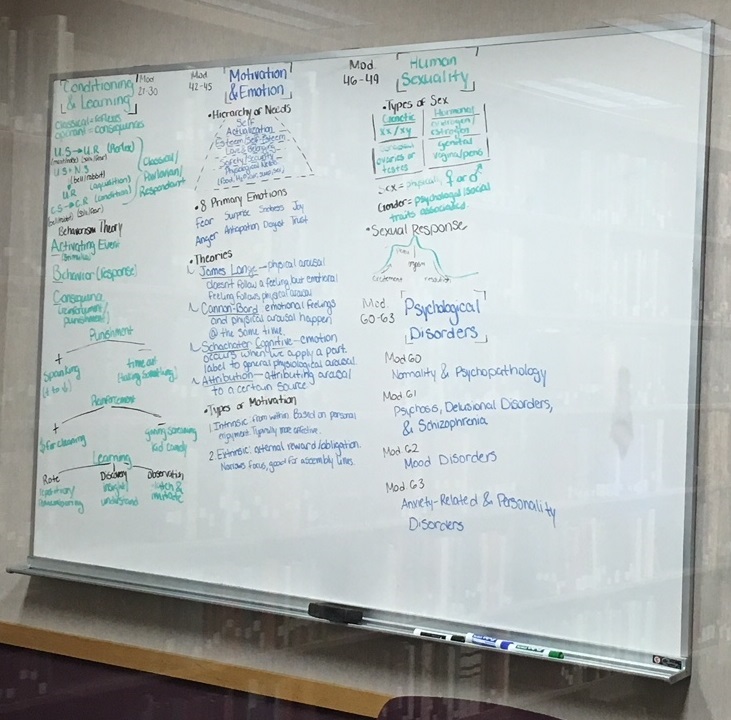 Conditioning
& Learning
Mod
21-30
Classical = reflexes
operant = consequences
U.S → U.R (Pavlov)
U.S + N.S
(bell/rabbit)
U.R (aquisition)
C.S → C.R (condition)
Classical/
Pavlovian/
Respondant
Behaviorism Theory
Activating Event
(stimulus)
Behavior (response)
Consequence
punishment)
Punishment
+
Spanking
-
time out
(taking something)
Reinforcement
+
$ for cleaning
-
giving screaming
kid candy
Learning
Rote
Discovery
insight/
understand
Observation
listen &
imitate
Mod
42-45
Motivation
& Emotion
• Hierarchy of Needs
Self
Actualization
Esteem/Self-Esteem
Love/Belonging
Safety/Security
Physiological Needs
• 8 Primary Emotions
Fear Surprise Sadness Joy
Anger Anticipation Disgust Trust
• Theories
James Lange - physical arousal
doesn't follow a feeling, but emotional
Feeling follows physical arousal
Cannon-Bard emotional feelings
and physical arousal happen
@ the same time.
Schachater Cognitive - emotion
occurs when we apply a part.
label to general physiological arousal
Attribution - attributing arousal
to a certain source
• Types of Motivation
1. Intrinsic: from within Based on personal
enjoyment. Typically more effective.
2. Extrinsic: external reward/obligation.
Narrows focus, good for assembly lines.
Mod.
46-49
Human
Sexuality
• Types of Sex
Genetic
xx/xy
Hormonal
estrogen
ovaries or
testes
genital
vagina/penis
Sex = physical, ♀ or ♂
Gender = psychological/social
traits associated.
• Sexual Response
orgasm
excitement
Mod.
60-63
Psychological
Disorders
Mod 60
Normality & Psychopathology
Mod 61
Psychosis, Delusional Disorders,
& Schizophrenia
Mod 62
Mood Disorders
Mod 63
Anxiety-Related & Personality
Disorders